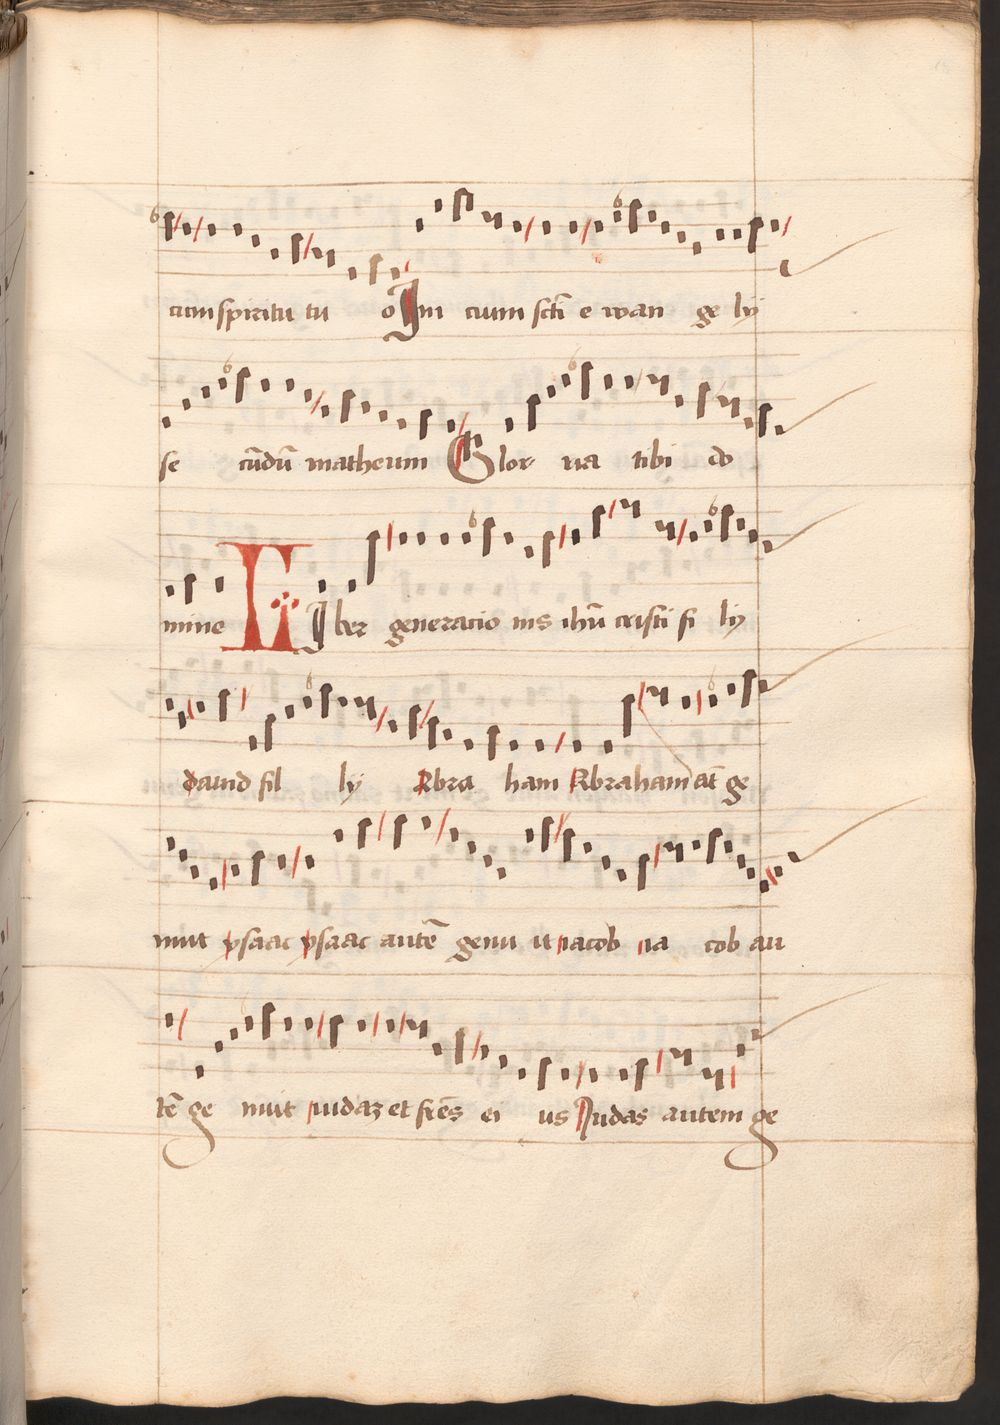 cum spiritu tu o Ini cium scti e wan ge ly
se cūdū matheum Glor ria tibi do
mine LIber generacio nis ihū cristi fi ly
dauid fil ly Abra ham Abraham at̄ ge
nuit ysaac ysaac autē genu it iacob ia cob au
tē ge nuit iudaz et frēs ei us Iudas autem ge